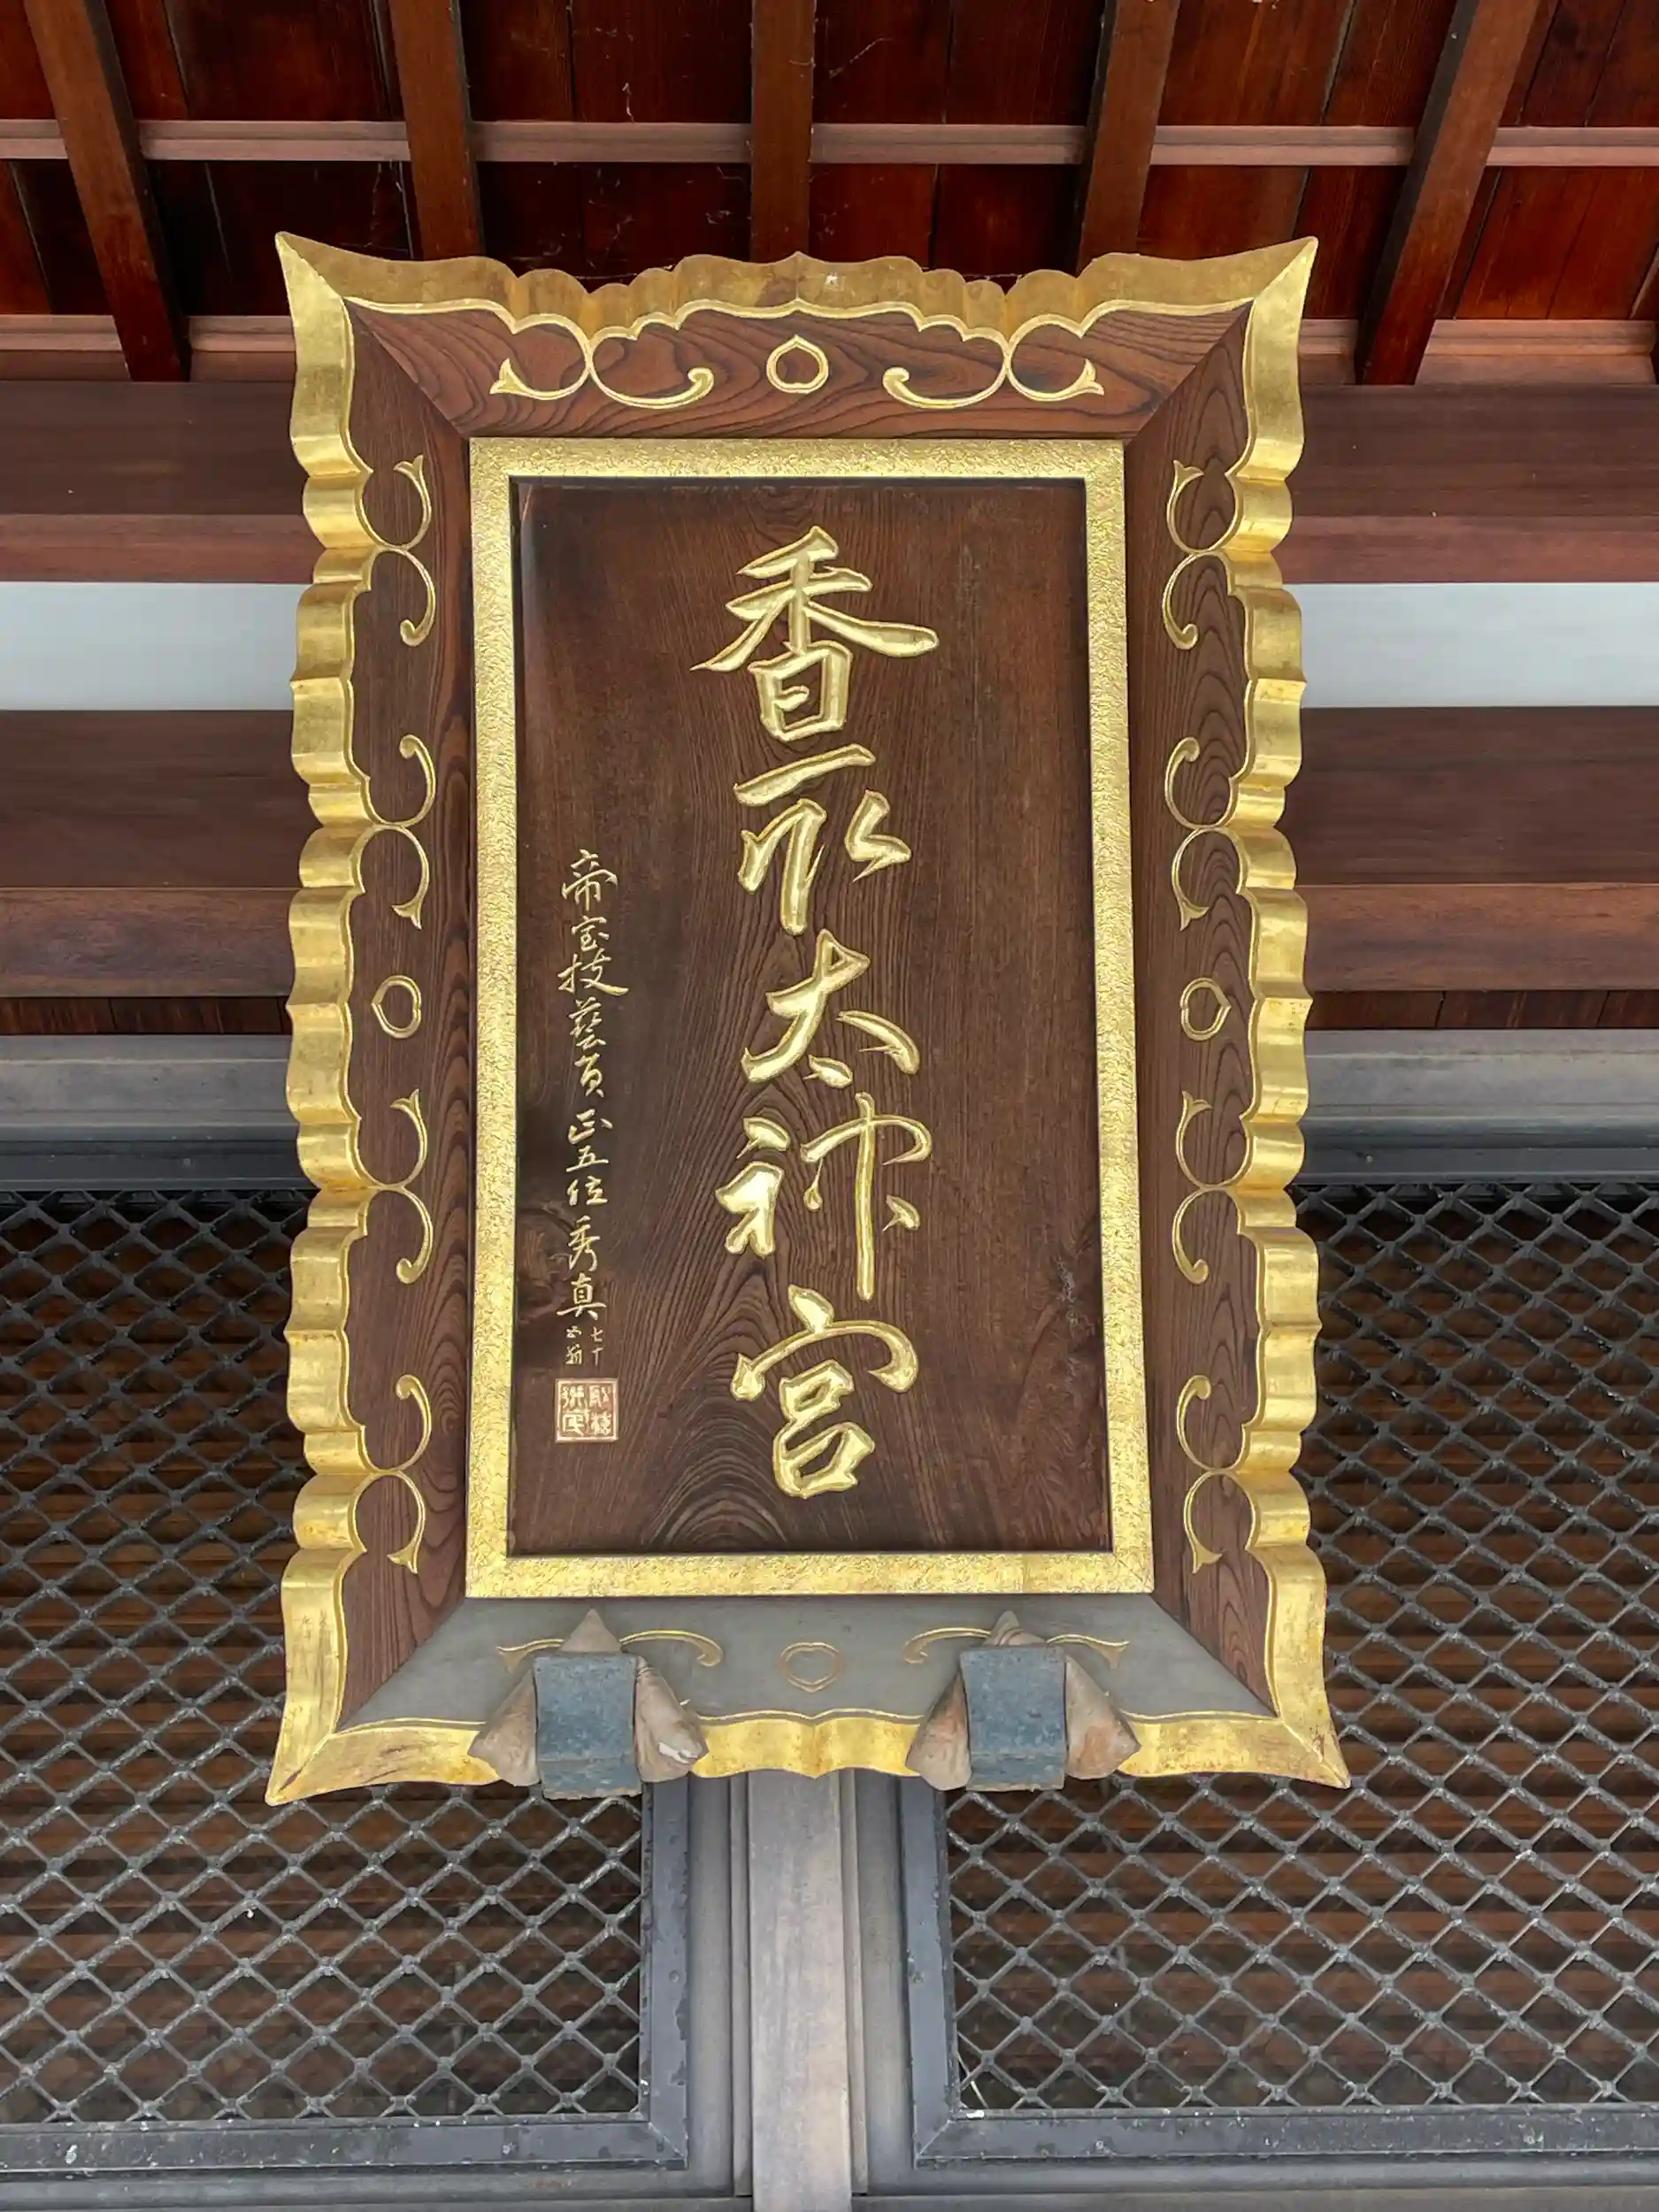 香取太神宮
帝室技藝員正五位秀真
七十
翁